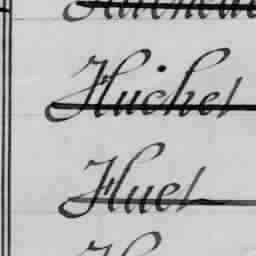 Huchet
Huet